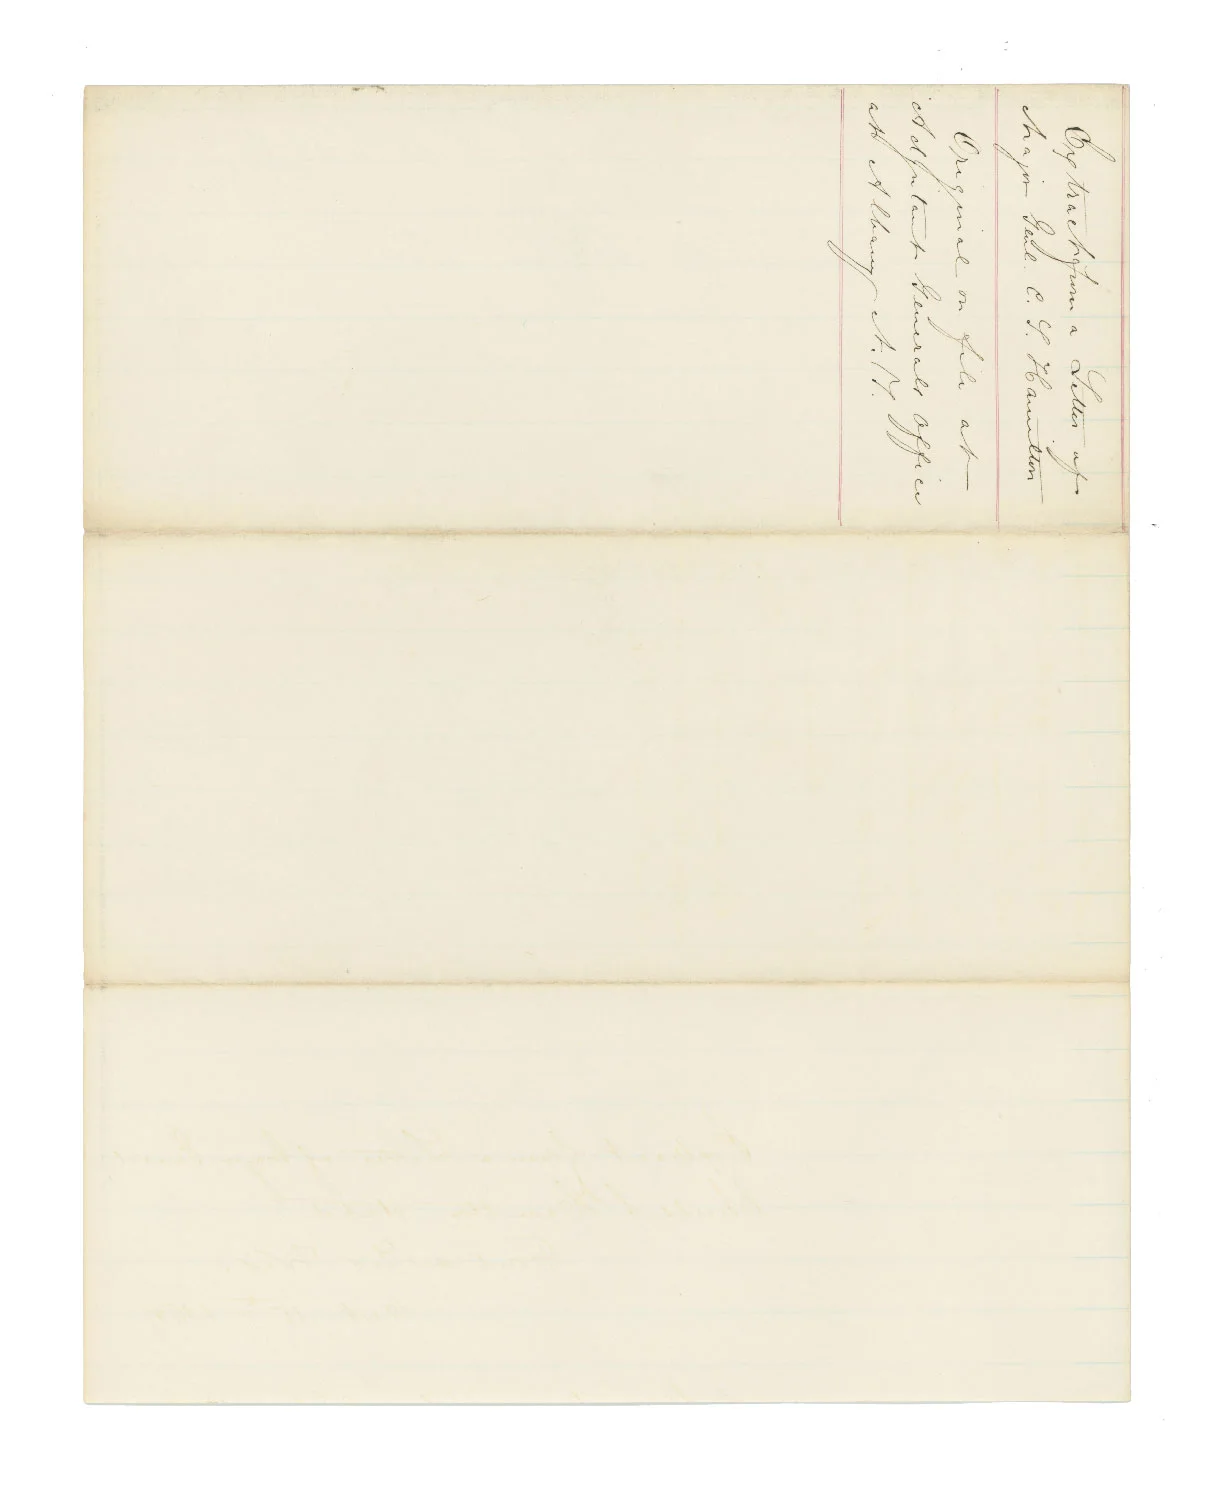 Extract from a Letter of
Major Genl. C. S. Hamilton
Original on file at
Adjutant Generals Office
at Albany N. Y.